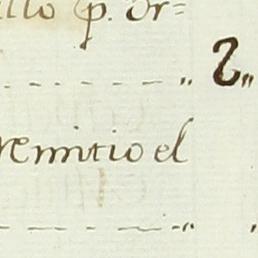 illo p. or=
2,,
remitio el